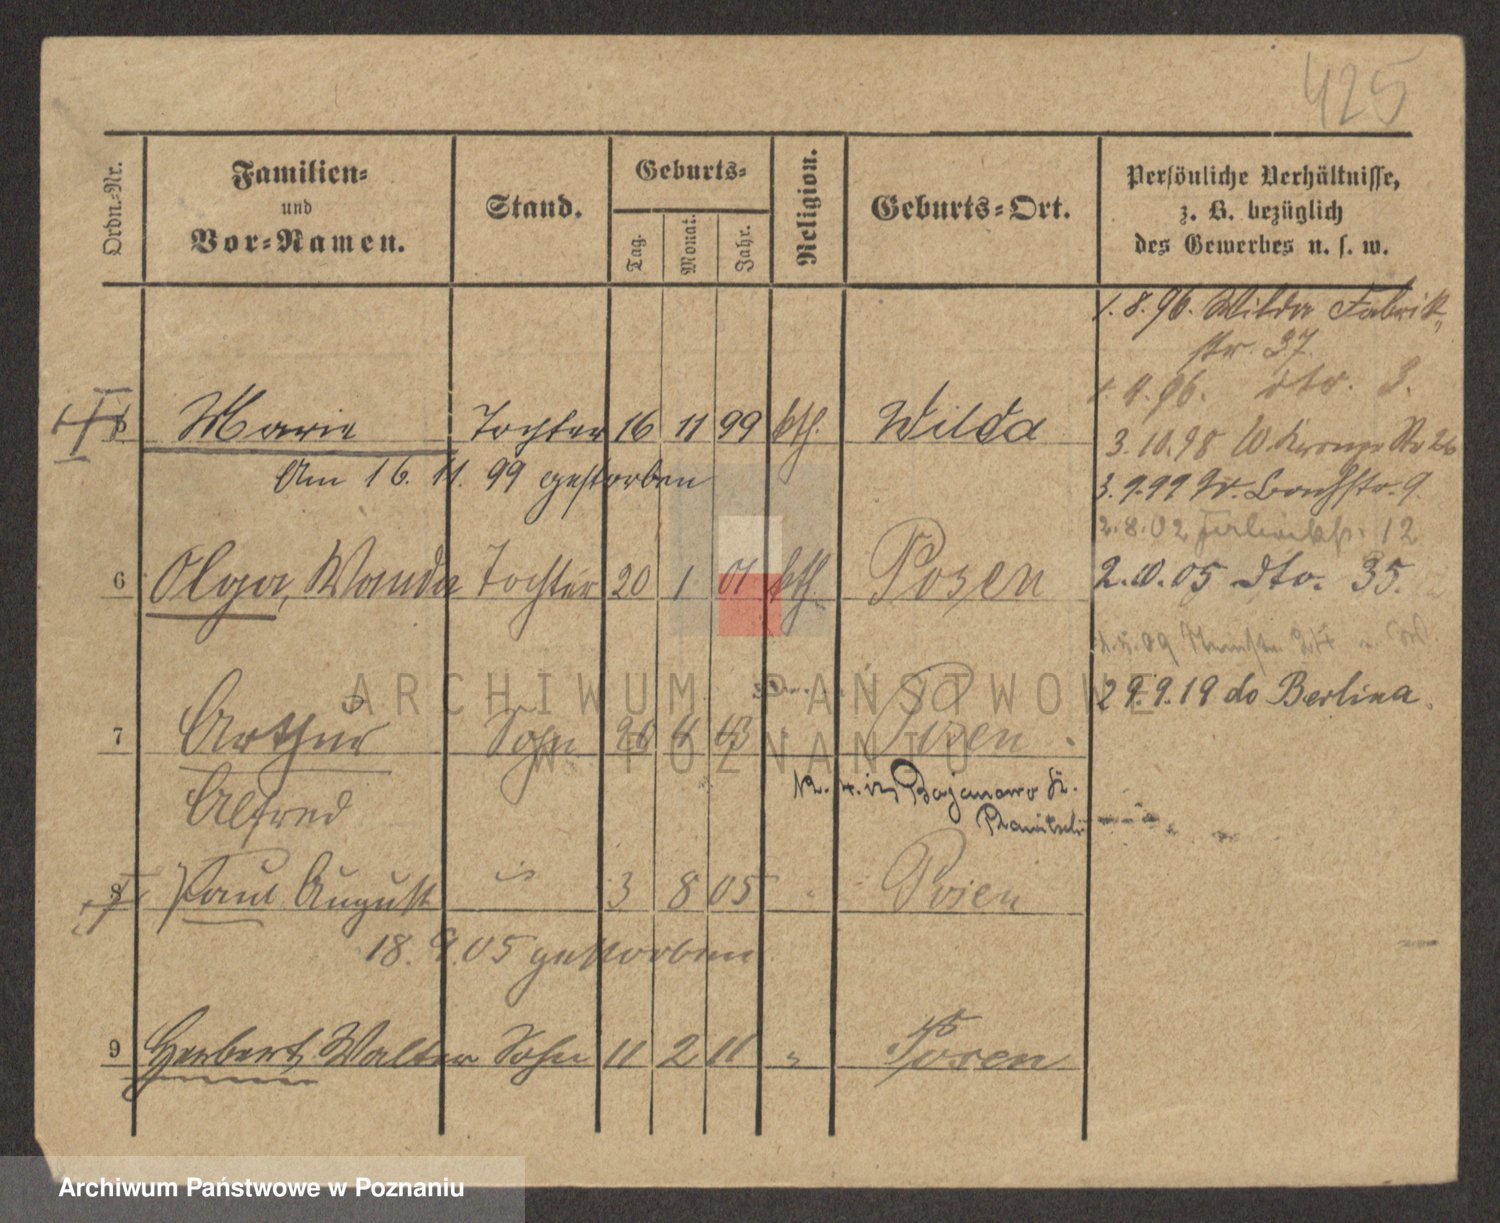 425
Ordn.-Nr.
Familien-
und
Vor-Namen.
Stand.
Geburts-
Tag.
Monat.
Jahr.
Religion.
Geburts-Ort.
Persönliche Verhältnisse,
z. B. bezüglich
des Gewerbes u. s. w.
1. 8. 96. Wilda Fabrik
str. 37
1. 9. 96. dto. 3.
Marie Tochter 16 11 99 kth. Wilda
3. 10. 98 W.
Am 16. 11. 99 gestorben
3. 9. 99 Bachstr. 9.
2. 8. 02 12
6 Olga, Wanda Tochter 20 1 01 kth. Posen
2. 10. 05 dto. 35.
29. 9. 19 do Berlina.
7 Arthur Sohn 26 4 03 Posen
Alfred
Bojanowo
8 Paul August 3 8 05 Posen
18. 9. 05 gestorben
9 Herbert, Walter Sohn 11 2 11 " Posen
ARCHIWUM PAŃSTWOWE
W POZNANIU
Archiwum Państwowe w Poznaniu